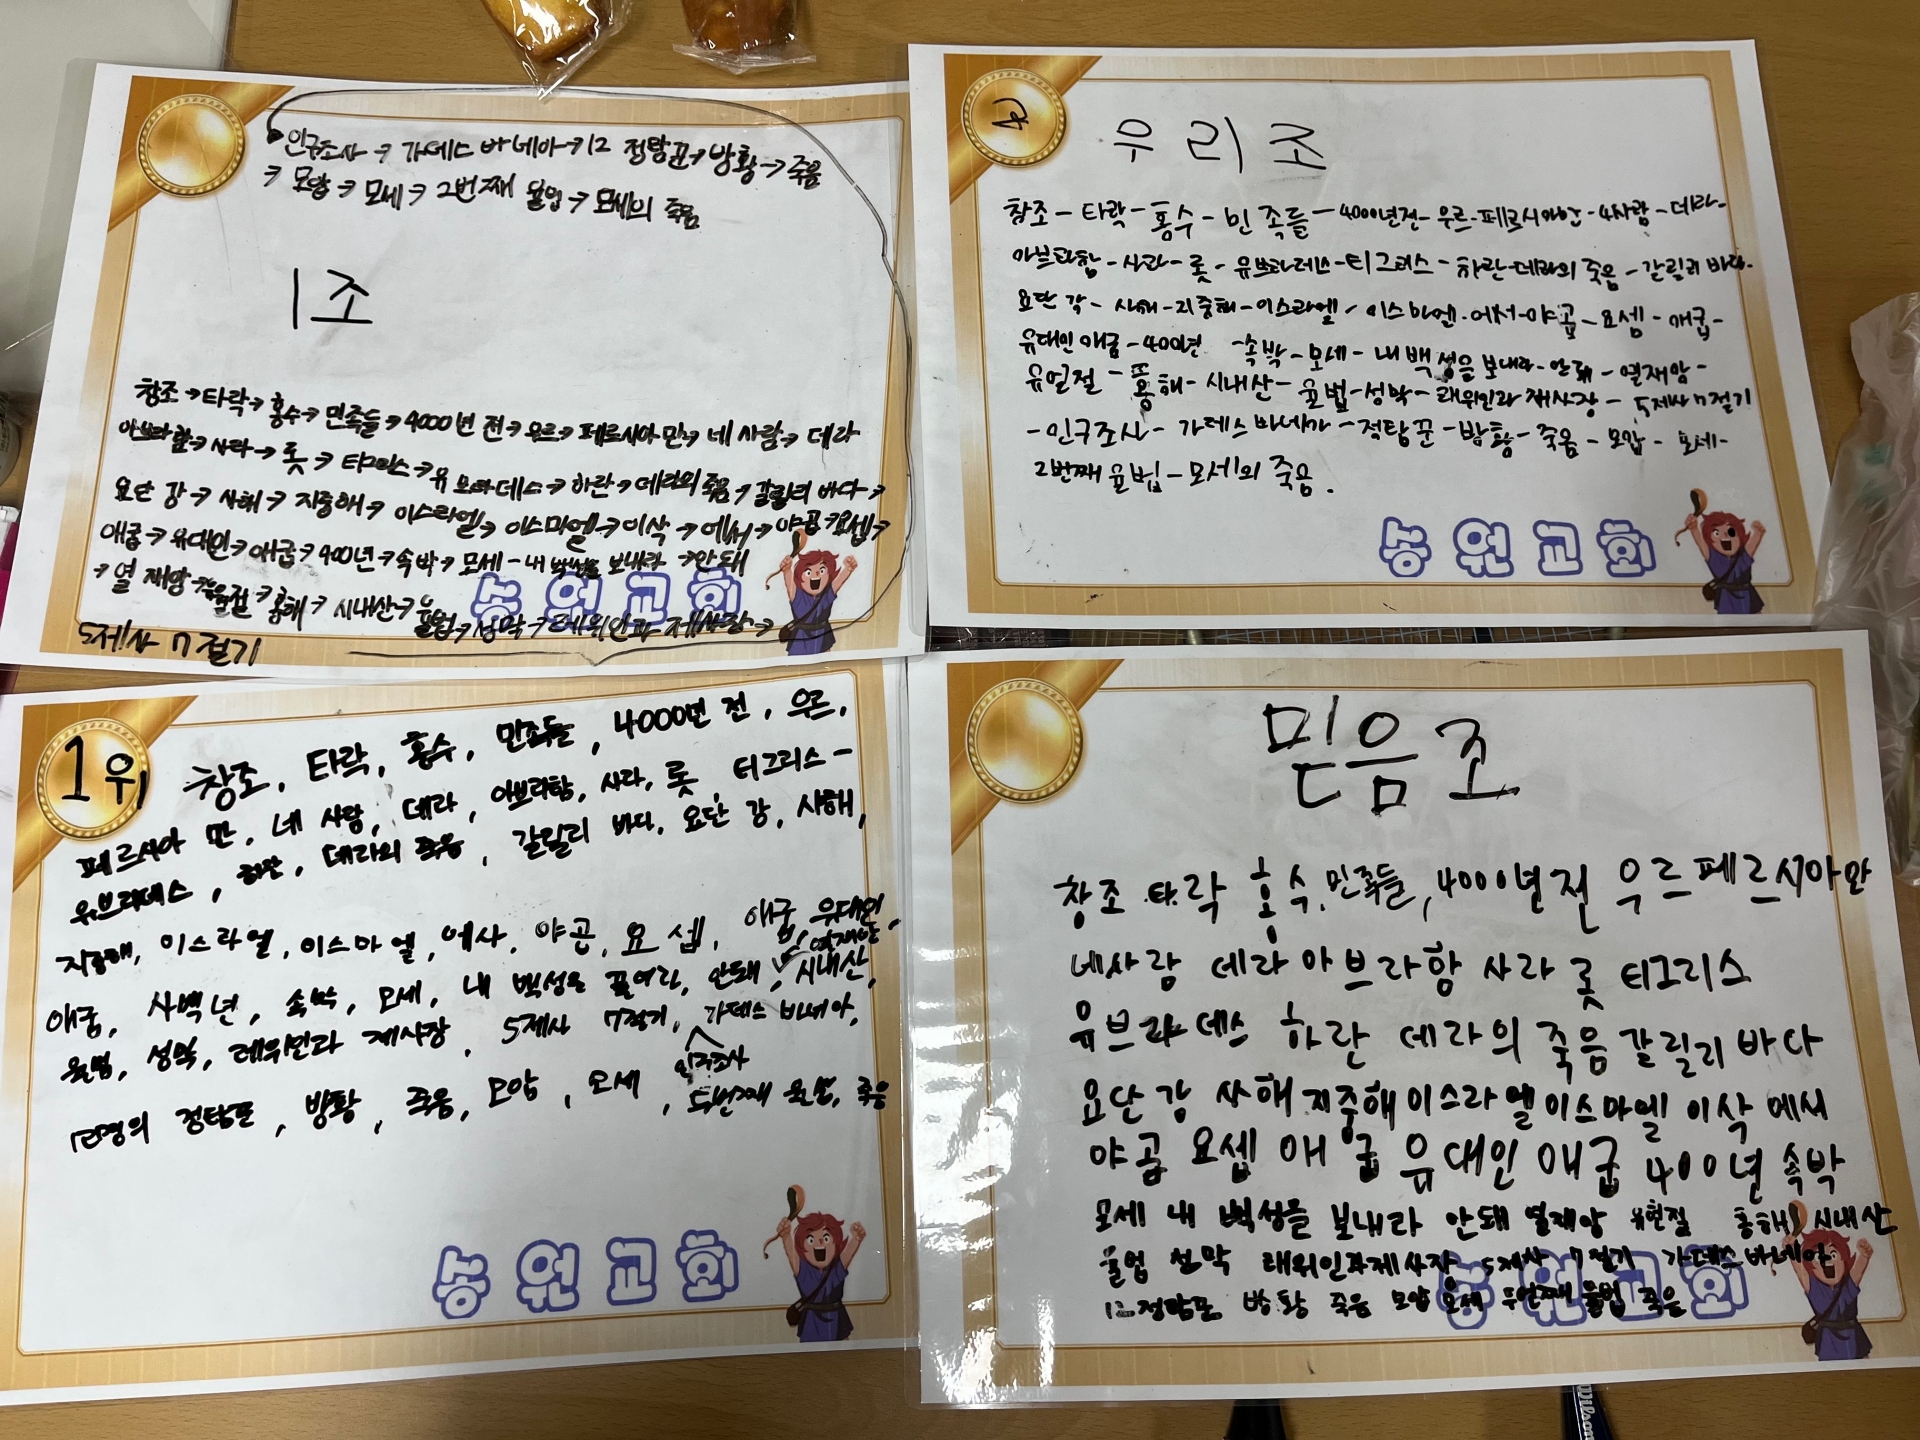 인구조사 → 가데스 바네아 → 12 정탐꾼 → 방황 → 죽음
→ 모압 → 모세 → 2번째 율법 → 모세의 죽음
1조
창조 → 타락 → 홍수 → 민족들 → 4000년 전 → 우르 → 페르시아 만 → 네 사람 → 데라
아브라함 → 사라 → 롯 → 티그리스 → 유브라데스 → 하란 → 데라의 죽음 → 갈릴리 바다 →
요단 강 → 사해 → 지중해 → 이스라엘 → 이스마엘 → 이삭 → 에서 → 야곱 → 요셉 →
애굽 → 유대인 → 애굽 → 400년 → 속박 → 모세 - 내 백성을 보내라 → 안돼
→ 열 재앙 → 유월절 → 홍해 → 시내산 → 율법 → 성막 → 레위인과 제사장 →
5제사 7절기
송원교회
우리조
창조 - 타락 - 홍수 - 민족들 - 4000년전 - 우르 - 페르시아만 - 4사람 - 데라 -
아브라함 - 사라 - 롯 - 유브라데스 - 티그리스 - 하란 - 데라의 죽음 - 갈릴리 바다 -
요단 강 - 사해 - 지중해 - 이스라엘 - 이스마엘 - 에서 - 야곱 - 요셉 - 애굽 -
유대인 애굽 - 400년 - 속박 - 모세 - 내 백성을 보내라 - 안돼 - 열재앙 -
유월절 - 홍해 - 시내산 - 율법 - 성막 - 래위인과 제사장 - 5제사 7절기
- 인구조사 - 가데스바네아 - 정탐꾼 - 방황 - 죽음 - 모압 - 모세 -
2번째 율법 - 모세의 죽음.
송원교회
1위
창조, 타락, 홍수, 민족들, 4000년 전, 우르,
페르시아 만, 네 사람, 데라, 아브라함, 사라, 롯, 티그리스 -
유브라데스, 하란, 데라의 죽음, 갈릴리 바다, 요단 강, 사해,
지중해, 이스라엘, 이스마엘, 에사, 야곱, 요셉, 애굽, 유대인,
열재앙,
애굽, 사백년, 속박, 모세, 내 백성을, 안돼, 시내산,
율법, 성막, 레위인과 제사장, 5제사 7절기, 가데스 바네아,
인구조사
12명의 정탐꾼, 방황, 죽음, 모압, 모세, 두번째 율법, 죽음
송원교회
믿음조
창조 타락 홍수, 민족들, 4000년전 우르 페르시아만
네사람 데라 아브라함 사라 롯 티그리스
유브라데스 하란 데라의 죽음 갈릴리 바다
요단강 사해 지중해 이스라엘 이스마엘 이삭 에서
야곱 요셉 애굽 유대인 애굽 400년 속박
모세 내 백성을 보내라 안돼 열재앙 유월절 홍해 시내산
율법 성막 래위인과제사장 5제사 7절기 가데스바네아
12정탐꾼 방황 죽음 모압 모세 두번째 율법 죽음
송원교회
Wilson